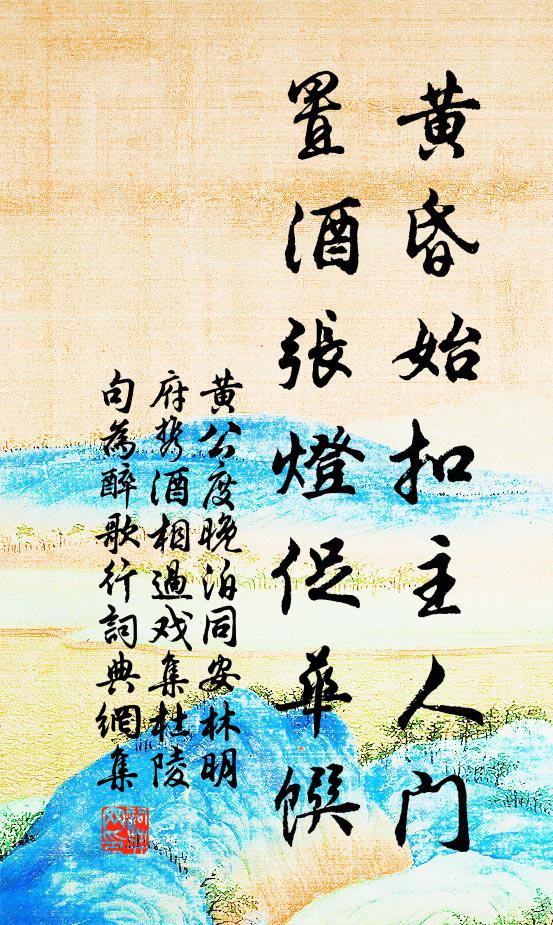 黄昏始扣主人门
置酒張燈促華饌
黄公度晚泊同安林明
府携酒相過戏集杜陵
句為醉歌行詞典網集